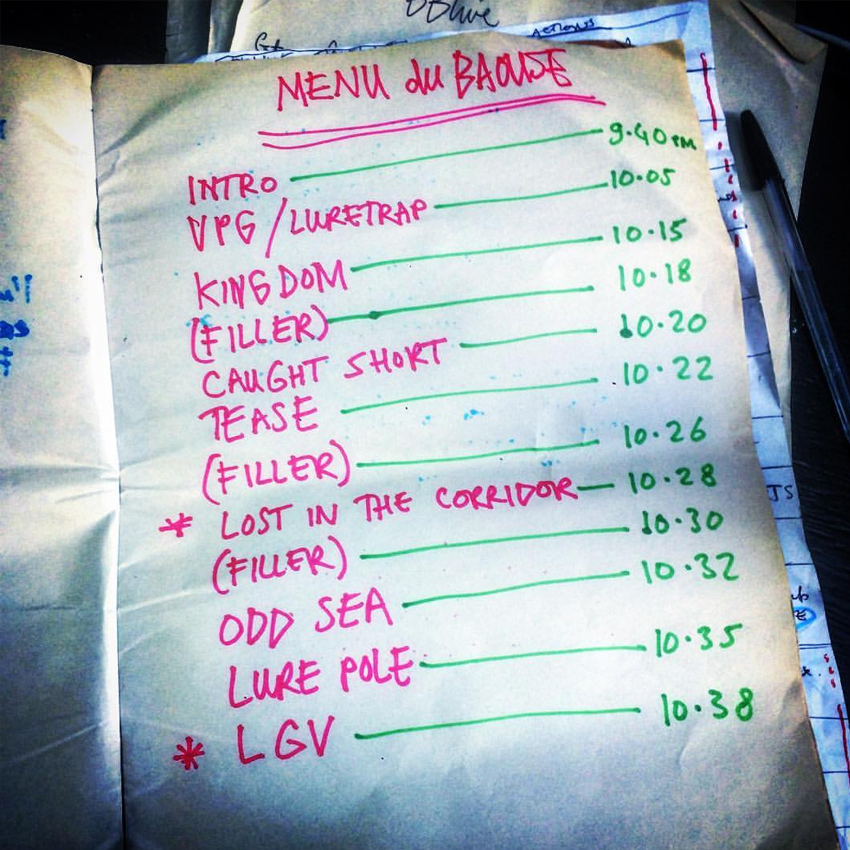 MENU du BAOUSE
INTRO 9.40 PM
VPG/LURETRAP 10.05
KINGDOM 10.15
(FILLER) 10.18
CAUGHT SHORT 10.20
TEASE 10.22
(FILLER) 10.26
* LOST IN THE CORRIDOR 10.28
(FILLER) 10.30
ODD SEA 10.32
LURE POLE 10.35
* LGV 10.38